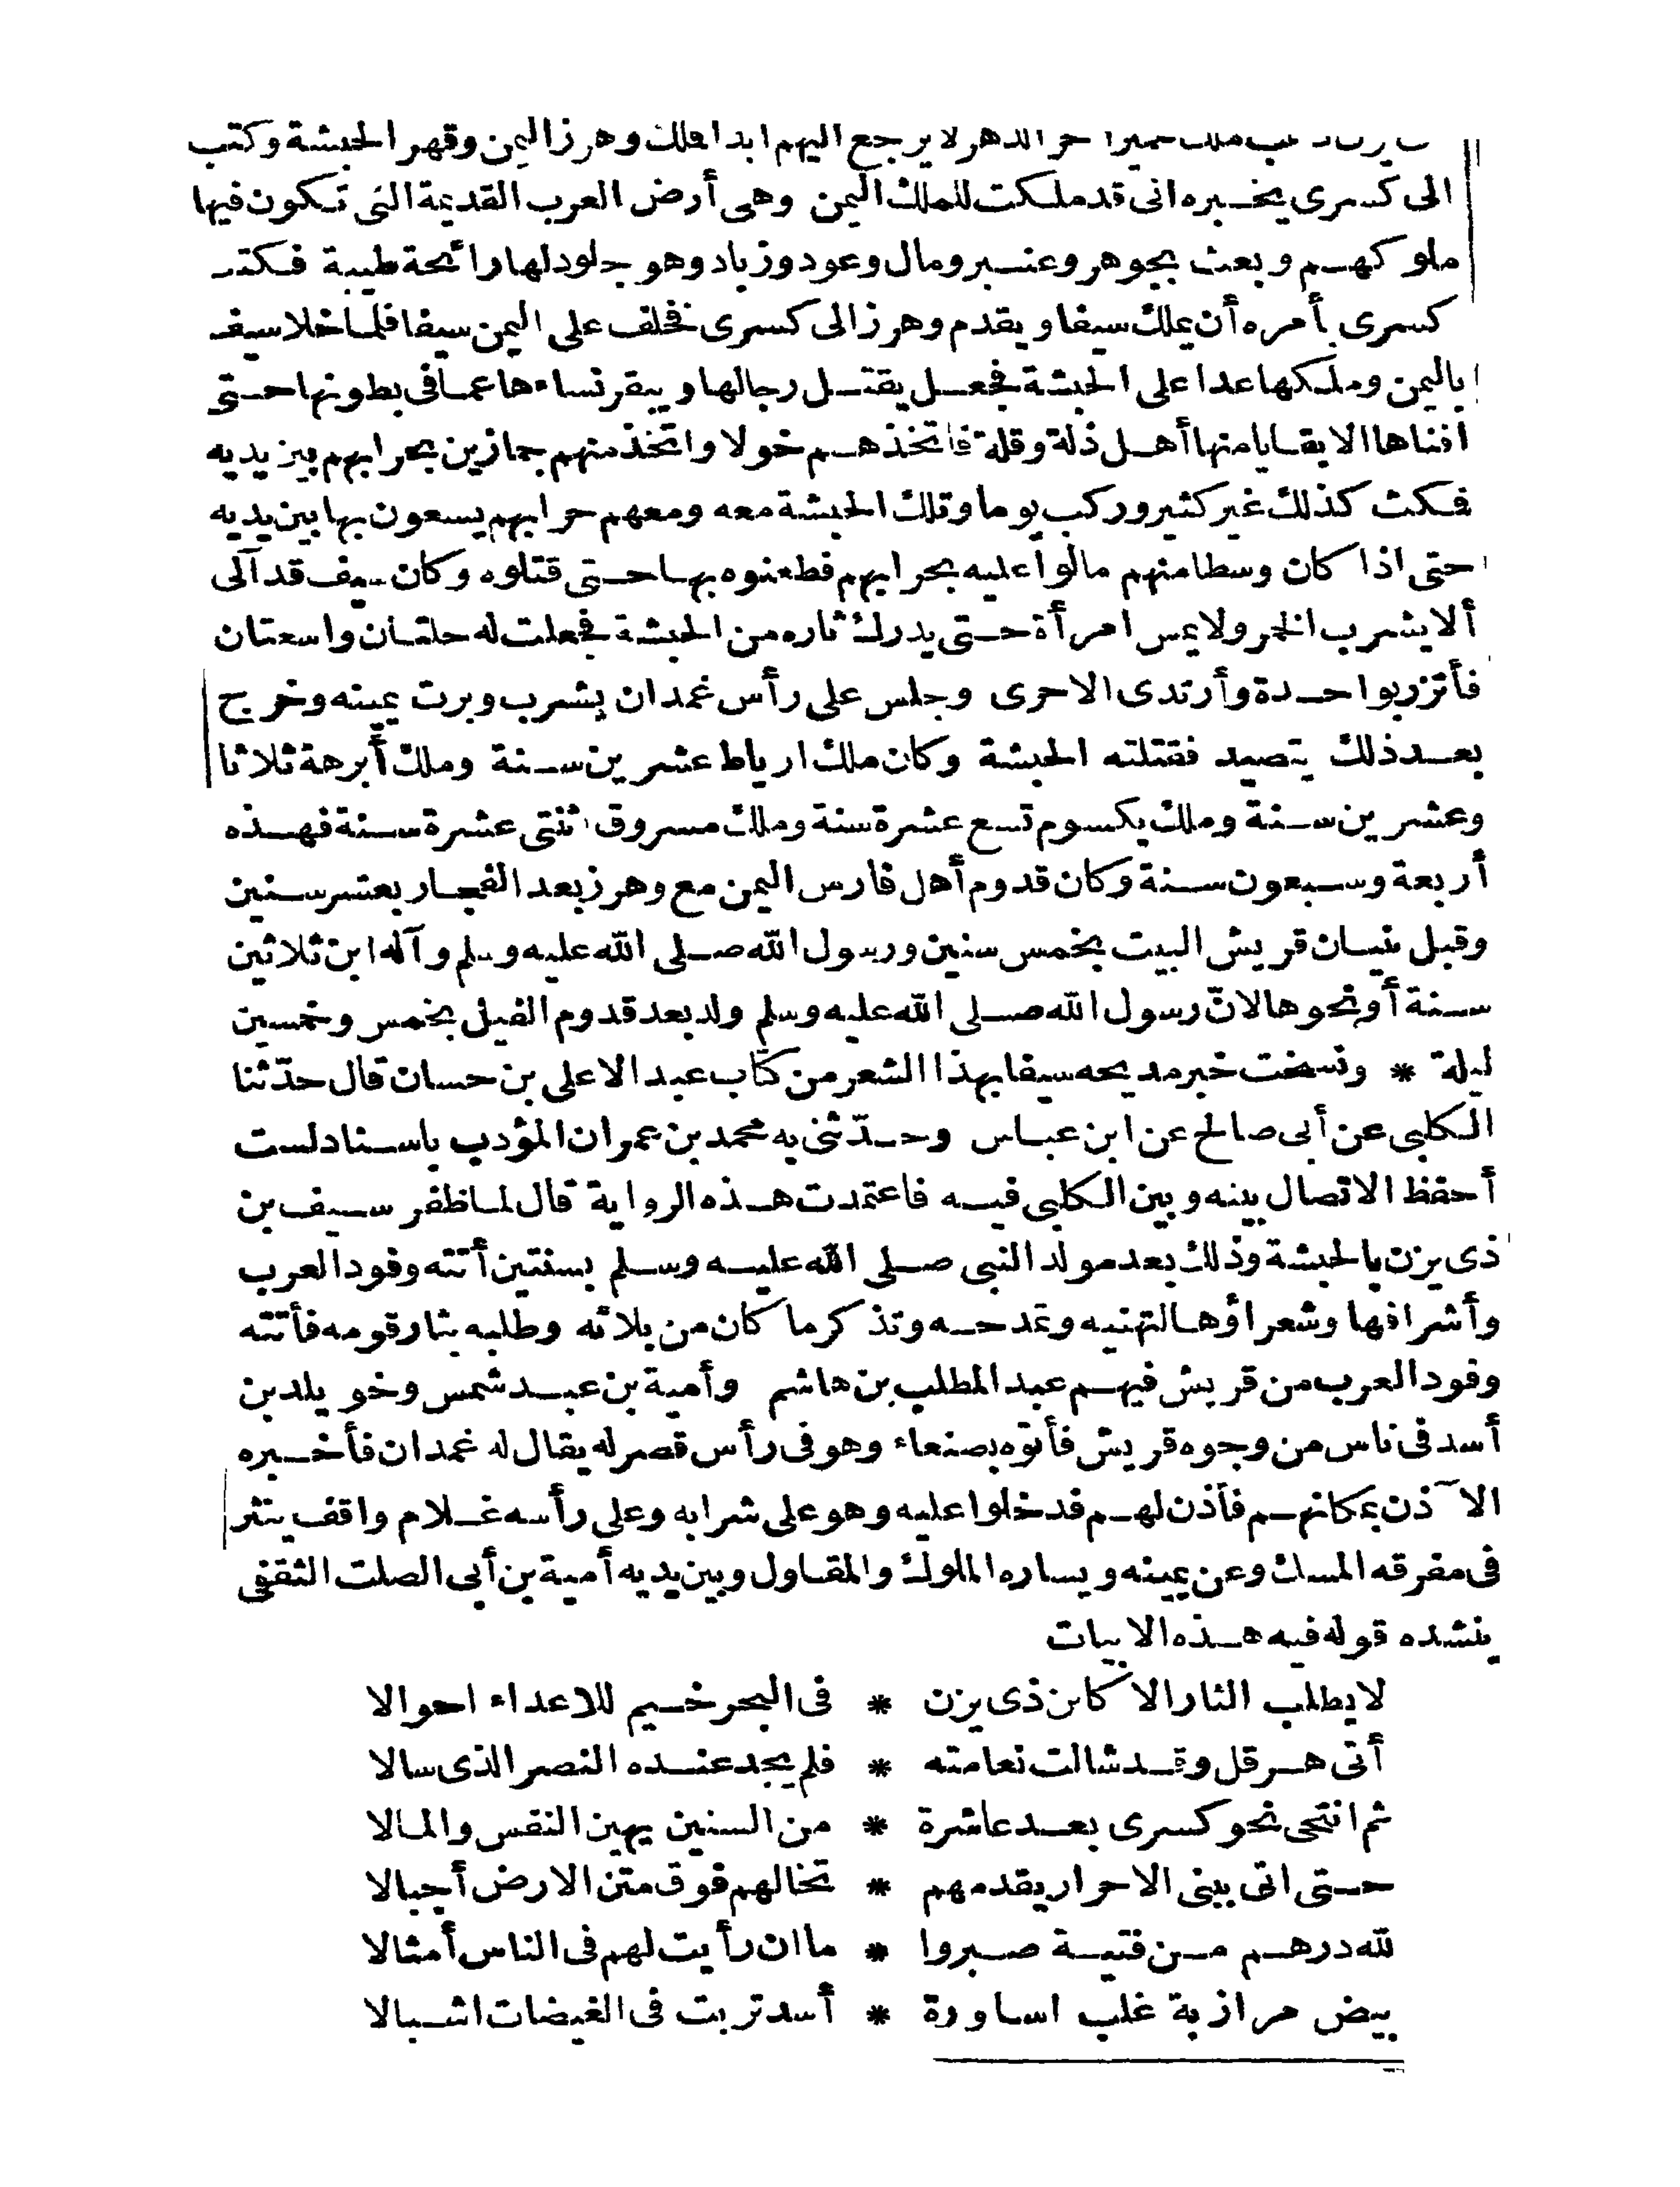 الدهر لا يرجع اليهم ابدا فملك وهرز اليمن وقهر الحبشة وكتب
الى كسرى يخبره انى قد ملكت للملك اليمن وهى أرض العرب القديمة التى تكون فيها
ملوكهم وبعث بجوهر وعنبر ومال وعود وزباد وهو جلود لها رائحة طيبة فكتب
كسرى يأمره أن يملك سيفا ويقدم وهرز الى كسرى فخلف على اليمن سيفا فلما خلا سيف
باليمن وملكها عدا على الحبشة فجعل يقتل رجالها ويبقر نساءها عما فى بطونها حتى
افناها الا بقايا منها أهل ذلة وقلة فاتخذهم خولا واتخذ منهم جمازين بحرابهم بين يديه
فمكث كذلك غير كثير وركب يوما وتلك الحبشة معه ومعهم حرابهم يسعون بها بين يديه
حتى اذا كان وسطا منهم مالوا عليه بحرابهم فطعنوه بها حتى قتلوه وكان سيف قد آلى
ألا يشرب الخمر ولا يمس امرأة حتى يدرك ثاره من الحبشة فجعلت له حلتان واسعتان
فأتزر بواحدة وأرتدى الاخرى وجلس على رأس غمدان يشرب وبرت يمينه وخرج
بعد ذلك يتصيد فقتلته الحبشة وكان ملك ارياط عشرين سنة وملك أبرهة ثلاثا
وعشرين سنة وملك يكسوم تسع عشرة سنة وملك مسروق اثنتى عشرة سنة فهذه
أربعة وسبعون سنة وكان قدوم أهل فارس اليمن مع وهرز بعد الفجار بعشر سنين
وقبل بنيان قريش البيت بخمس سنين ورسول الله صلى الله عليه وسلم وآله ابن ثلاثين
سنة أو نحوها لانّ رسول الله صلى الله عليه وسلم ولد بعد قدوم الفيل بخمس وخمسين
ليلة * ونسخت خبر مديحه سيفا بهذا الشعر من كتاب عبد الاعلى بن حسان قال حدّثنا
الكلبى عن أبى صالح عن ابن عباس وحدّثنى به محمد بن عمران المؤدب باسناد لست
أحفظ الاتصال بينه وبين الكلبى فيه فاعتمدت هذه الرواية قال لما ظفر سيف بن
ذى يزن بالحبشة وذلك بعد مولد النبى صلى الله عليه وسلم بسنتين أتته وفود العرب
وأشرافها وشعراؤها لتهنيه وتمدحه وتذكر ما كان من بلائه وطلبه بثار قومه فأتته
وفود العرب من قريش فيهم عبد المطلب بن هاشم وأمية بن عبد شمس وخويلد بن
أسد فى ناس من وجوه قريش فأتوه بصنعاء وهو فى رأس قصر له يقال له غمدان فأخبره
الآذن بمكانهم فأذن لهم فدخلوا عليه وهو على شرابه وعلى رأسه غلام واقف ينثر
فى مفرقه المسك وعن يمينه ويساره الملوك والمقاول وبين يديه أمية بن أبى الصلت الثقفى
ينشده قوله فيه هذه الابيات
لا يطلب الثار الا كابن ذى يزن * فى البحر خيم للاعداء احوالا
أتى هرقل وقد شالت نعامته * فلم يجد عنده النصر الذى سالا
ثم انتحى نحو كسرى بعد عاشرة * من السنين يهين النفس والمالا
حتى اتى ببنى الاحرار يقدمهم * تخالهم فوق متن الارض أجبالا
لله درهم من فتية صبروا * ما ان رأيت لهم فى الناس أمثالا
بيض مرازبة غلب اساورة * أسد تربت فى الغيضات اشبالا